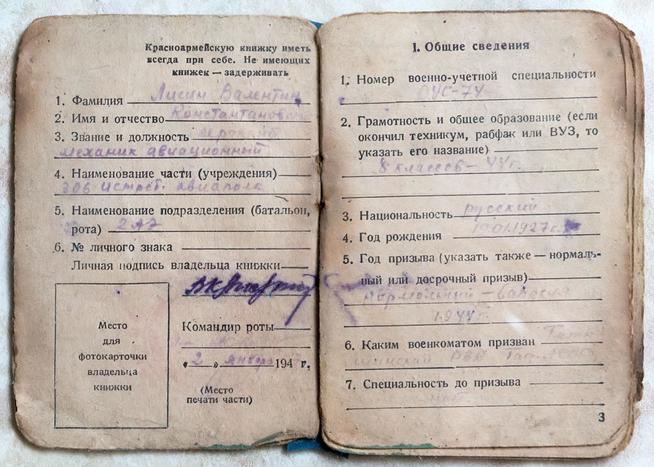 Красноармейскую книжку иметь
всегда при себе. Не имеющих
книжек — задерживать
1. Фамилия Лисин Валентин
2. Имя и отчество Константинович
3. Звание и должность
механик авиационный
4. Наименование части (учреждения)
306 истреб. авиаполк
5. Наименование подразделения (батальон,
рота)
6. № личного знака
Личная подпись владельца книжки
Место
для
фотокарточки
владельца
книжки
Командир роты
„2„ января 194 г.
(Место
печати части)
I. Общие сведения
1. Номер военно-учетной специальности
2. Грамотность и общее образование (если
окончил техникум, рабфак или ВУЗ, то
указать его название)
8 классов - 44 г.
3. Национальность русский
4. Год рождения
5. Год призыва (указать также — нормаль-
ный или досрочный призыв)
нормальный
1944 г.
6. Каким военкоматом призван
7. Специальность до призыва
3